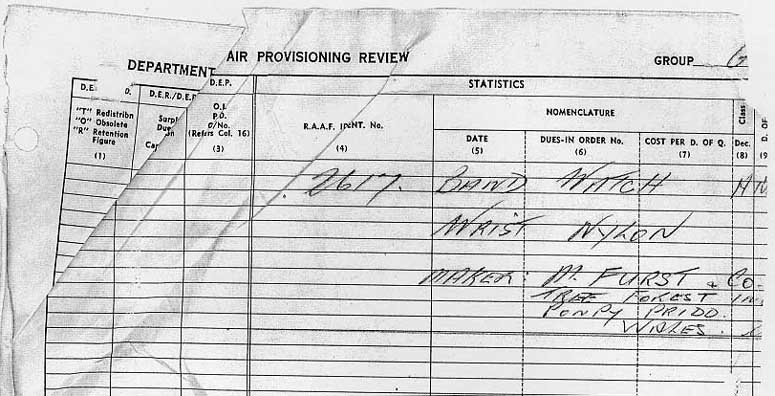 DEPARTMENT AIR PROVISIONING REVIEW GROUP G
D.E. D. D.E.R./D.E.P. D.E.P. STATISTICS
"T" Redistribn
"O" Obsolete
"R" Retention
Figure
(1)
Surpl
Due
Ca
O.I.
P.D.
O/No.
(Refers Col. 16)
(3)
R.A.A.F. IDENT. No.
(4)
NOMENCLATURE
DATE
(5)
DUES-IN ORDER No.
(6)
COST PER D. OF Q.
(7)
Class
Dec.
(8)
D. OF
(9
2617. BAND WATCH
WRIST NYLON
MAKER: M. FURST & CO.
TREE FOREST IN
PONPY PRIDD.
WALES.